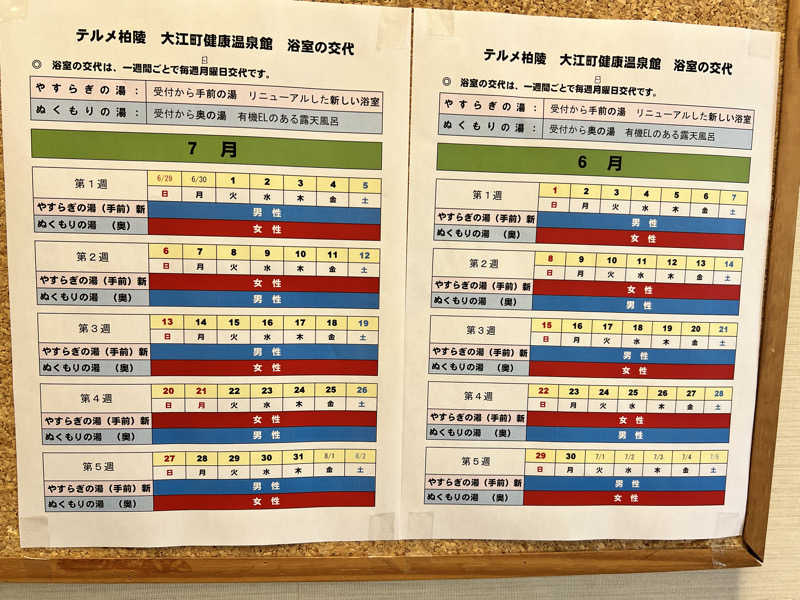 テルメ柏陵 大江町健康温泉館 浴室の交代
日
◎ 浴室の交代は、一週間ごとで毎週月曜日交代です。
やすらぎの湯: 受付から手前の湯 リニューアルした新しい浴室
ぬくもりの湯: 受付から奥の湯 有機ELのある露天風呂
7 月
第1週 6/29 6/30 1 2 3 4 5
日 月 火 水 木 金 土
やすらぎの湯(手前)新 男 性
ぬくもりの湯 (奥) 女 性
第2週 6 7 8 9 10 11 12
日 月 火 水 木 金 土
やすらぎの湯(手前)新 女 性
ぬくもりの湯 (奥) 男 性
第3週 13 14 15 16 17 18 19
日 月 火 水 木 金 土
やすらぎの湯(手前)新 男 性
ぬくもりの湯 (奥) 女 性
第4週 20 21 22 23 24 25 26
日 月 火 水 木 金 土
やすらぎの湯(手前)新 女 性
ぬくもりの湯 (奥) 男 性
第5週 27 28 29 30 31 8/1 8/2
日 月 火 水 木 金 土
やすらぎの湯(手前)新 男 性
ぬくもりの湯 (奥) 女 性
テルメ柏陵 大江町健康温泉館 浴室の交代
日
◎ 浴室の交代は、一週間ごとで毎週月曜日交代です。
やすらぎの湯: 受付から手前の湯 リニューアルした新しい浴室
ぬくもりの湯: 受付から奥の湯 有機ELのある露天風呂
6 月
第1週 1 2 3 4 5 6 7
日 月 火 水 木 金 土
やすらぎの湯(手前)新 男 性
ぬくもりの湯 (奥) 女 性
第2週 8 9 10 11 12 13 14
日 月 火 水 木 金 土
やすらぎの湯(手前)新 女 性
ぬくもりの湯 (奥) 男 性
第3週 15 16 17 18 19 20 21
日 月 火 水 木 金 土
やすらぎの湯(手前)新 男 性
ぬくもりの湯 (奥) 女 性
第4週 22 23 24 25 26 27 28
日 月 火 水 木 金 土
やすらぎの湯(手前)新 女 性
ぬくもりの湯 (奥) 男 性
第5週 29 30 7/1 7/2 7/3 7/4 7/5
日 月 火 水 木 金 土
やすらぎの湯(手前)新 男 性
ぬくもりの湯 (奥) 女 性